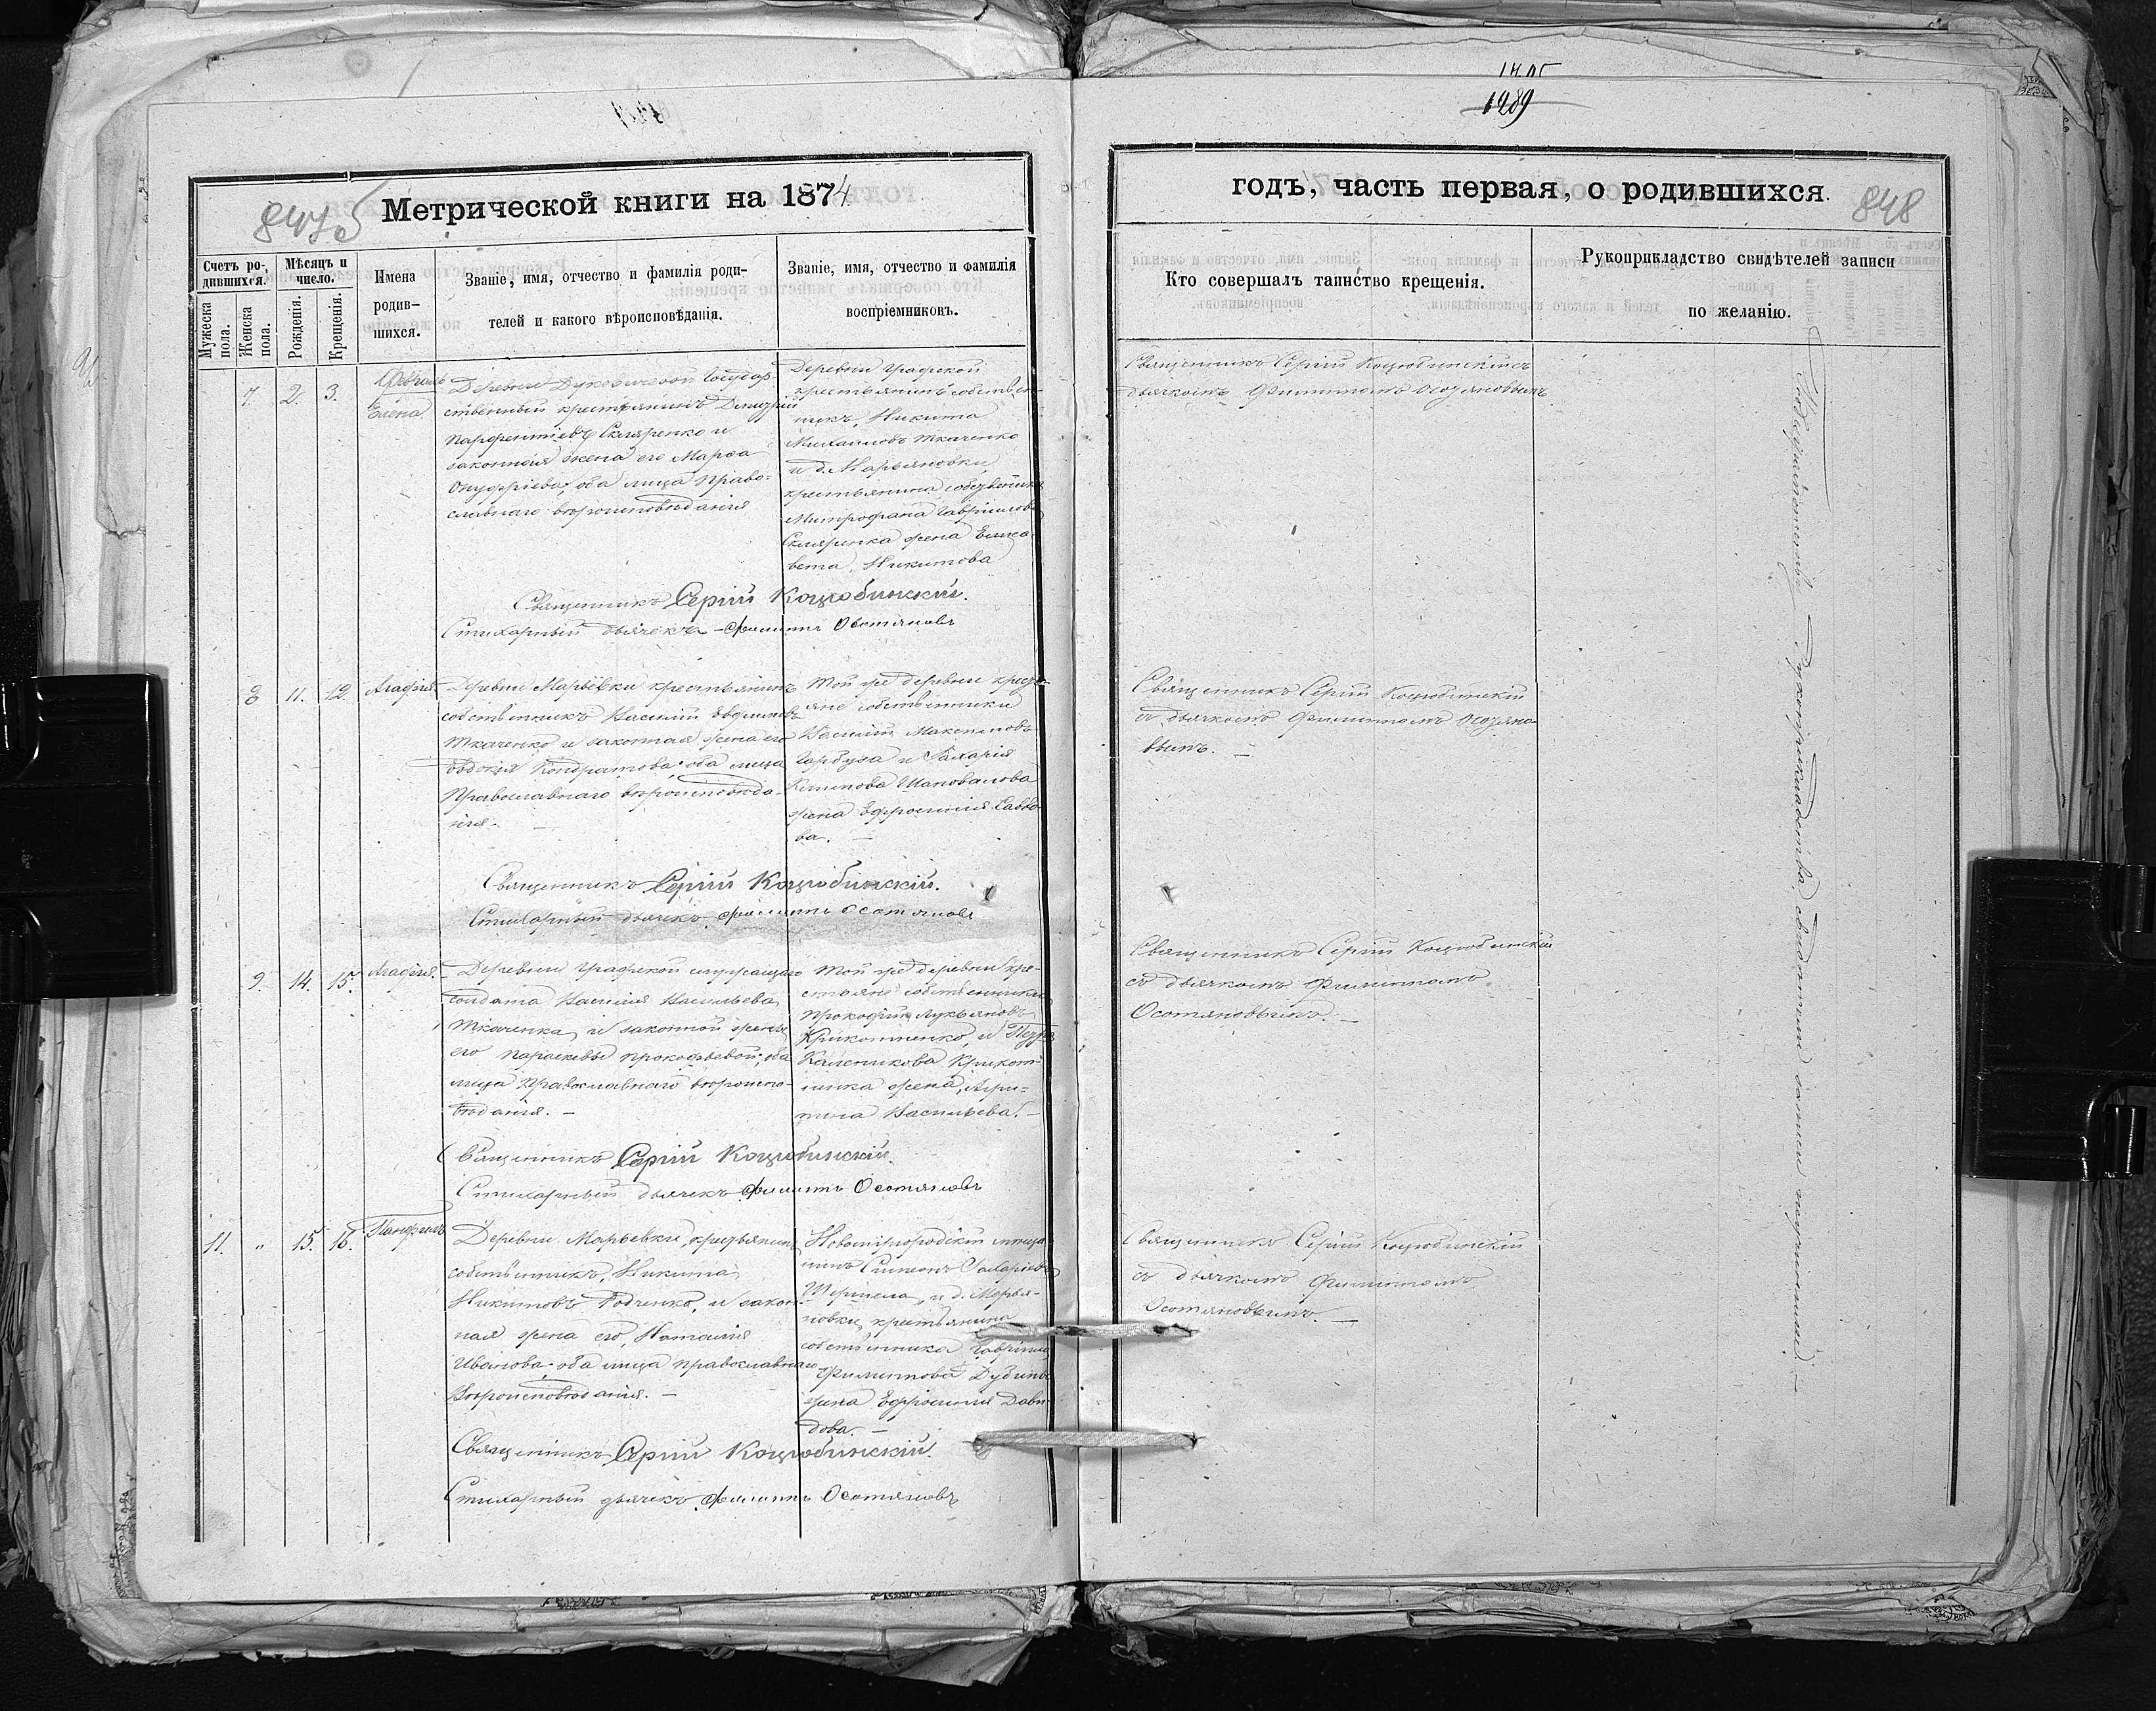 1289
847
Метрической книги на 1874
Счетъ ро-
дившихся.
Мѣсяцъ и
число.
Мужеска пола.
Женска пола.
Рожденія.
Крещенія.
Имена
родив-
шихся.
Званіе, имя, отчество и фамилія роди-
телей и какого вѣроисповѣданія.
Званіе, имя, отчество и фамилія
воспріемниковъ.
7. 2. 3.
Февраль
Елена
Деревни Государ-
ственный крестьянинъ Дмитрій
Парфентіевъ Скляренко и
законная жена его Марѳа
Онуфріева, оба лица Право-
славнаго вѣроисповѣданія
Деревни Графской
крестьянинъ собствен-
никъ, Никита
Михаиловъ Ткаченко
и д. Марьяновки
крестьянина собственника
Митрофана Гавріилова
Скляренка жена Елиса-
вета Никитова
Священникъ Сергій Коцюбинскій.
Стихарный дьячекъ Филиппъ Осотяновъ
8 11. 12. Агафія.
Деревни Марьевки крестьянинъ
собственникъ Василій Евдокимовъ
Ткаченко и законная жена его
Евдокія Кондратова, оба лица
Православнаго вѣроисповѣда-
нія. —
Той же деревни кресть-
яне собственники
Василій Максимовъ
Гарбуза и Захарія
Климова Шаповалова
жена Ефросинія Савво-
ва. —
Священникъ Сергій Коцюбинскій.
Стихарный дьячекъ Филиппъ Осотяновъ
9. 14. 15. Агафія.
Деревни Графской служащаго
солдата Василія Васильева
Ткаченка и законной жены
его Параскевы Прокофьевой, оба
лица Православнаго вѣроиспо-
вѣданія. —
Той же деревни кре-
стьяне собственники
Прокофій Лукьяновъ
и Петра
Каленикова
жена, Агри-
пина Васильева. —
Священникъ Сергій Коцюбинскій.
Стихарный дьячекъ Филиппъ Осотяновъ
11. " 15. 16. Памфилъ
Деревни Марьевки, крестьянинъ
собственникъ, Никита
Никитовъ и закон-
ная жена его, Наталія
Иванова, оба лица православнаго
Вѣроисповѣданія. —
Новомиргородскій мѣща-
нинъ Симеонъ Захаріевъ
и д. Марья-
новки, крестьянина
собственника Гавріила
Филиппова
жена Ефросинія Дави-
дова. —
Священникъ Сергій Коцюбинскій.
Стихарный дьячекъ Филиппъ Осотяновъ
годъ, часть первая, о родившихся.
848
Кто совершалъ таинство крещенія.
Рукоприкладство свидѣтелей записи
по желанію.
Священникъ Сергій Коцюбинскій съ
дьячкомъ Филиппомъ Осотяновымъ
Священникъ Сергій Коцюбинскій
съ дьячкомъ Филиппомъ Осотяно-
вымъ. —
Священникъ Сергій Коцюбинскій
съ дьячкомъ Филиппомъ
Осотяновымъ. —
Священникъ Сергій Коцюбинскій
съ дьячкомъ Филиппомъ
Осотяновымъ. —
Рукоприкладства свидѣтелей записи